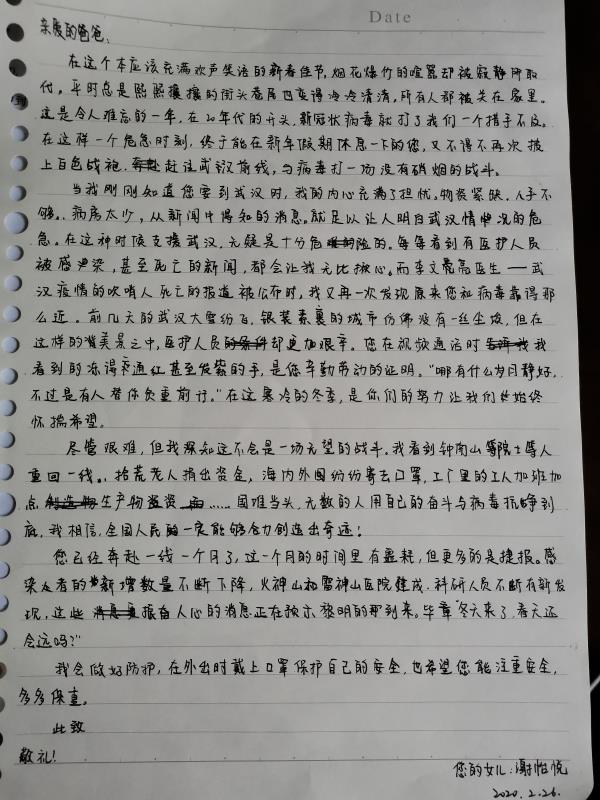 Date
亲爱的爸爸:
在这个本应该充满欢声笑语的新春佳节,烟花爆竹的喧嚣却被寂静所取
代。平时总是熙熙攘攘的街头巷尾也变得冷冷清清,所有人都被关在家里。
这是令人难忘的一年,在20年代的开头,新冠状病毒就打了我们一个措手不及。
在这样一个危急时刻,终于能在新年假期休息一下的您,又不得不再次披
上白色战袍,赶往武汉前线,与病毒打一场没有硝烟的战斗。
当我刚刚知道您要到武汉时,我的内心充满了担忧。物资紧缺,人手不
够,病床太少,从新闻中得知的消息。就足以让人明白武汉情况的危
急。在这种时候支援武汉,无疑是十分危险的。每每看到有医护人员
被感染,甚至死亡的新闻,都会让我无比揪心。而李文亮医生——武
汉疫情的吹哨人死亡的报道被公布时,我又再一次发现原来您和病毒靠得那
么近。前几天的武汉大雪纷飞,银装素裹的城市仿佛没有一丝尘埃,但在
这样的美景之中,医护人员却更加艰辛。您在视频通话时我
看到的冻得通红甚至发紫的手,是您辛勤劳动的证明。“哪有什么岁月静好,
不过是有人替你负重前行。”在这寒冷的冬季,是你们的努力让我们始终
怀揣希望。
尽管艰难,但我深知这不会是一场无望的战斗。我看到钟南山等院士等人
重回一线,拾荒老人捐出资金,海内外国纷纷寄去口罩,工厂里的工人加班加
点生产物资……国难当头,无数的人用自己的奋斗与病毒抗争到
底,我相信,全国人民一定能够合力创造出奇迹!
您已经奔赴一线一个月了,这一个月的时间里有噩耗,但更多的是捷报。感
染者的新增数量不断下降,火神山和雷神山医院建成,科研人员不断有新发
现,这些振奋人心的消息正在预示黎明的那到来。毕竟“冬天来了,春天还
会远吗?”
我会做好防护,在外出时戴上口罩保护自己的安全,也希望您能注重安全,
多多保重。
此致
敬礼!
您的女儿:谢怡悦
2020.2.26.